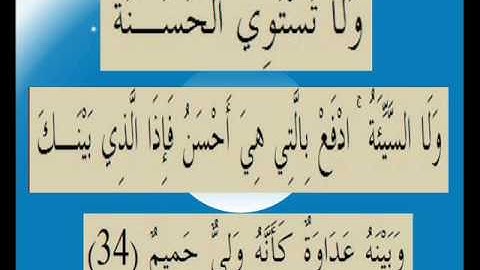 وَلَا تَسْتَوِي الْحَسَـــنَةُ
وَلَا السَّيِّئَةُ ۚ ادْفَعْ بِالَّتِي هِيَ أَحْسَنُ فَإِذَا الَّذِي بَيْنَـــكَ
وَبَيْنَهُ عَدَاوَةٌ كَأَنَّهُ وَلِيٌّ حَمِيمٌ (34)